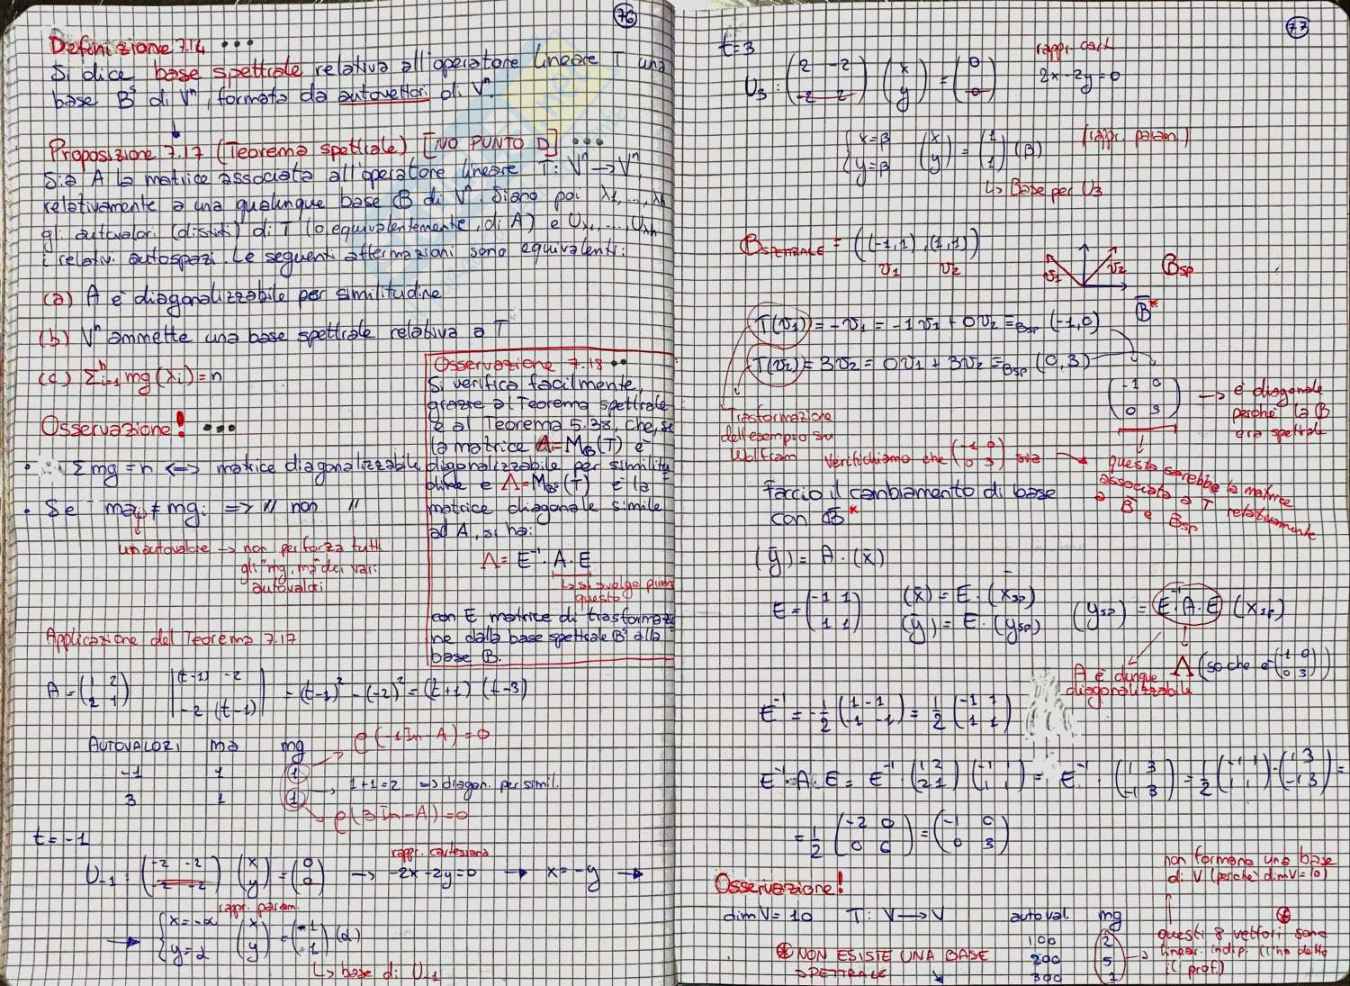 76
Definizione 7.14 •••
Si dice base spettrale relativa all'operatore lineare T una
base B' di Vⁿ, formata da autovettori di Vⁿ.
Proposizione 7.17 (Teorema spettrale) [NO PUNTO D] •••
Sia A la matrice associata all'operatore lineare T: Vⁿ→Vⁿ,
relativamente a una qualunque base B di Vⁿ. Siano poi λ1,...,λh
gli autovalori (distinti) di T (o equivalentemente, di A) e Uλ1,...,Uλh
i relativi autospazi. Le seguenti affermazioni sono equivalenti:
(a) A è diagonalizzabile per similitudine
(b) Vⁿ ammette una base spettrale relativa a T
(c) Σ mg(λi) = n
Osservazione! •••
Σ mg = n <-> matrice diagonalizzabile
• Se mai ≠ mgi => // non //
un autovalore → non per forza tutti
gli "mg, ma" dei vari
autovalori
Osservazione 7.18 ••
Si verifica facilmente,
grazie al Teorema spettrale
e al Teorema 5.38, che, se
la matrice A = MB(T) è
diagonalizzabile per simili
tudine e Λ = MB'(T) è la
matrice diagonale simile
ad A, si ha:
Λ = E⁻¹ · A · E
↳ si svolge prima
questo
con E matrice di trasformazio
ne dalla base spettrale B' alla
base B.
Applicazione del Teorema 7.17
A = (1 2 / 2 1) |(t-1) -2 / -2 (t-1)| = (t-1)² - (-2)² = (t+1) (t-3)
AUTOVALORI ma mg
ρ(-1In - A) = 0
-1 1 1
1+1=2 → diagon. per simil.
3 1 1
ρ(3In - A) = 0
t = -1
rappr. cartesiana
U-1 : (-2 -2 / -2 -2) (x / y) = (0 / 0) → -2x-2y=0 → x=-y →
rappr. param.
→ {x=-α / y=α (x / y) = (-1 / 1) (α)
↳ base di U-1
77
t=3
rappr. cart
U3 : (2 -2 / -2 2) (x / y) = (0 / 0) 2x-2y=0
{x=β / y=β (x / y) = (1 / 1) (β) (rappr. param)
↳ Base per U3
BSPETTRALE = ((-1,1), (1,1))
v1 v2
v1 v2 Bsp
B*
T(v1) = -v1 = -1v1 + 0v2 ≡Bsp (-1,0)
T(v2) = 3v2 = 0v1 + 3v2 ≡Bsp (0,3)
(-1 0 / 0 3) → è diagonale
perché la B
era spettrale
Trasformazione
dell'esempio su
Wolfram
Verifichiamo che (-1 0 / 0 3) sia
questa sarebbe la matrice
associata a T relativamente
a B e Bsp
Faccio il cambiamento di base
con B*
(y) = A · (x)
E = (-1 1 / 1 1) (x) = E · (xsp)
(y) = E · (ysp)
(ysp) = E⁻¹·A·E (xsp)
A è dunque
diagonalizzabile
Λ (so che è (-1 0 / 0 3))
E⁻¹ = -1/2 (1 -1 / -1 -1) = 1/2 (-1 1 / 1 1)
E⁻¹·A·E = E⁻¹ (1 2 / 2 1) (-1 1 / 1 1) = E⁻¹ · (1 3 / -1 3) = 1/2 (-1 1 / 1 1) · (1 3 / -1 3) =
= 1/2 (-2 0 / 0 6) = (-1 0 / 0 3)
non formano una base
di V (perché dimV=10)
Osservazione!
dimV = 10 T: V → V autoval. mg
100 2
200 5
300 1
questi 8 vettori sono
linear. indip. (l'ha detto
il prof.)
NON ESISTE UNA BASE
SPETTRALE